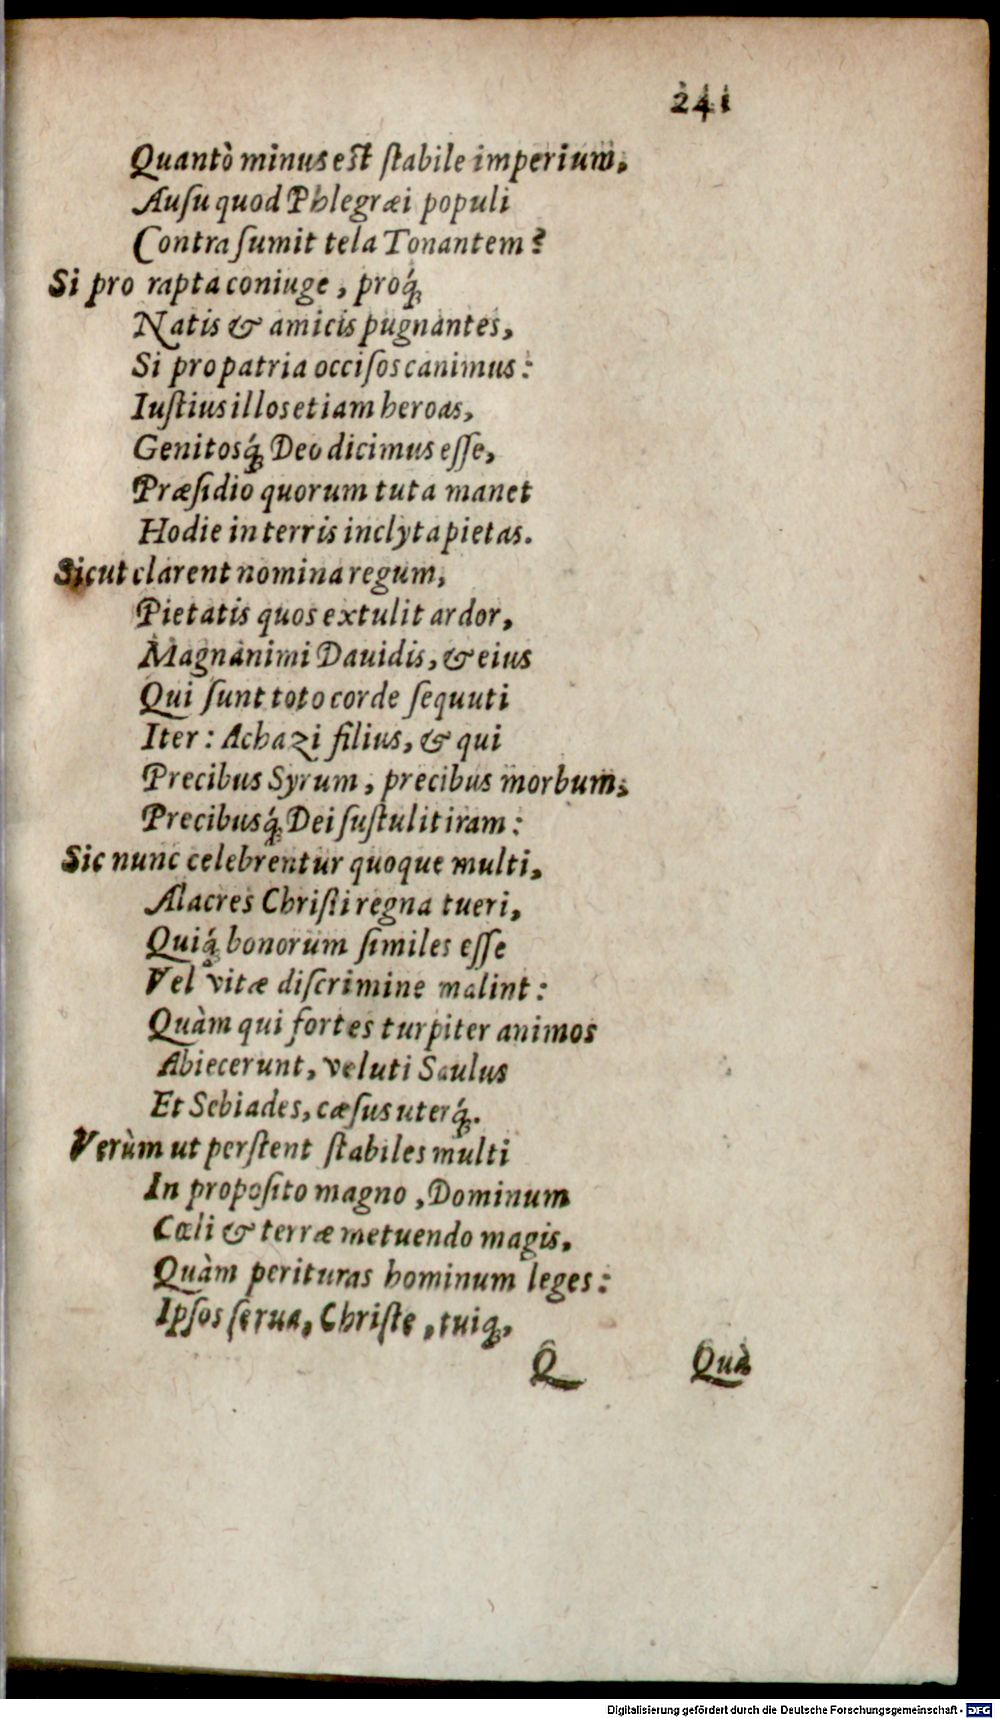 241
Quantò minus est ſtabile imperium,
Auſu quod Phlegræi populi
Contra ſumit tela Tonantem?
Si pro rapta coniuge, proq́;
Natis & amicis pugnantes,
Si pro patria occiſos canimus:
Iuſtius illos etiam heroas,
Genitosq́; Deo dicimus eſſe,
Præſidio quorum tuta manet
Hodie in terris inclyta pietas.
Sicut clarent nomina regum,
Pietatis quos extulit ardor,
Magnanimi Dauidis, & eius
Qui ſunt toto corde ſequuti
Iter: Achazi filius, & qui
Precibus Syrum, precibus morbum,
Precibusq́; Dei ſuſtulit iram:
Sic nunc celebrentur quoque multi,
Alacres Chriſti regna tueri,
Quiq́; bonorum ſimiles eſſe
Vel vitæ diſcrimine malint:
Quàm qui fortes turpiter animos
Abiecerunt, veluti Saulus
Et Sebiades, cæſus uterq́;.
Verùm ut perſtent ſtabiles multi
In propoſito magno, Dominum
Cœli & terræ metuendo magis,
Quàm perituras hominum leges:
Ipſos ſerua, Chriſte, tuiq;,
Q Quà
Digitalisierung gefördert durch die Deutsche Forschungsgemeinschaft - DFG